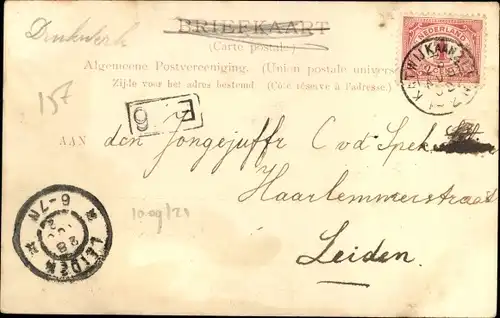 Drukwerk
BRIEFKAART
(Carte postale)
Algemeene Postvereeniging. (Union postale universelle)
Zijde voor het adres bestemd (Côté réservé à l'adresse.)
NEDERLAND
KATWIJK AAN ZEE
157
F 6
AAN den Jongejuffr C v d Spek
Haarlemmerstraat
Leiden.
1009/21
6-7N
28
LEIDEN